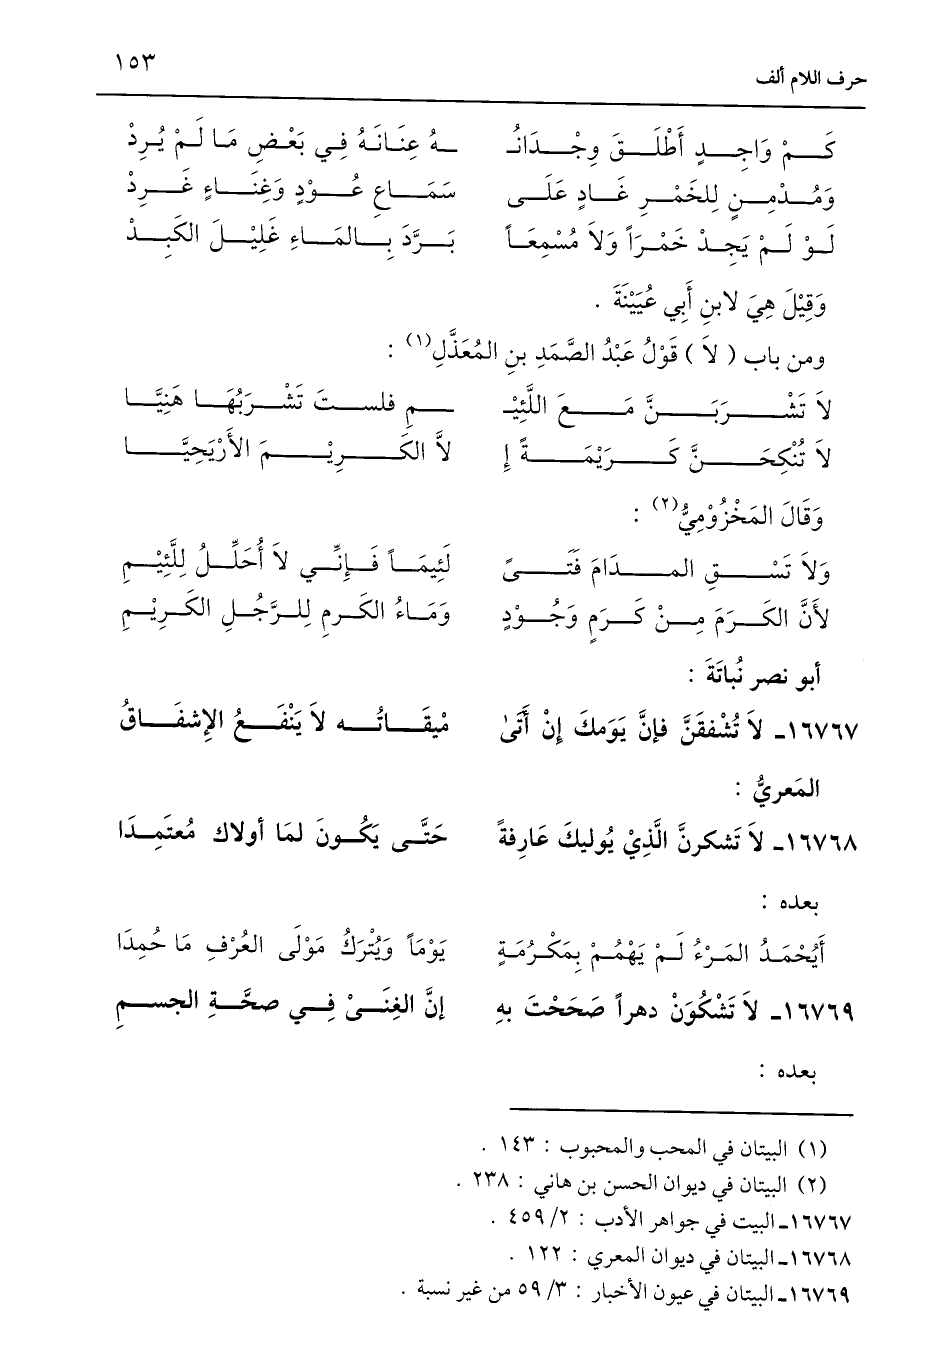 حرف اللام ألف ١٥٣
كَمْ وَاجِدٍ أَطْلَقَ وِجْدَانُـ ـهُ عِنَانَهُ فِي بَعْضِ مَا لَمْ يُرِدْ
وَمُدْمِنٍ لِلخَمْرِ غَادٍ عَلَى سَمَاعِ عُوْدٍ وَغِنَاءٍ غَرِدْ
لَوْ لَمْ يَجِدْ خَمْرَاً وَلاَ مُسْمِعَاً بَرَّدَ بِالمَاءِ غَلِيْلَ الكَبِدْ
وَقِيْلَ هِيَ لابنِ أَبي عُيَيْنَةَ .
ومن باب ( لاَ ) قَوْلُ عَبْدُ الصَّمَدِ بنِ المُعَذَّلِ(١) :
لاَ تَشْرَبَنَّ مَعَ اللَّئِيْـ ـمِ فلستَ تَشْرَبُهَا هَنِيَّا
لاَ تُنْكِحَنَّ كَرِيْمَةً إِ لاَّ الكَرِيْمَ الأَرْيَحِيَّا
وَقَالَ المَخْزُوْمِيُّ(٢) :
وَلاَ تَسْقِ المدَامَ فَتَىً لَئِيمَاً فَإِنِّي لاَ أُحَلِّلُ لِلَّئِيْمِ
لأَنَّ الكَرَمَ مِنْ كَرَمٍ وَجُوْدٍ وَمَاءُ الكَرمِ لِلرَّجُلِ الكَرِيْمِ
أبو نصر نُباتَةَ :
١٦٧٦٧ـ لاَ تُشْفقَنَّ فإنَّ يَوَمكَ إِنْ أَتَىٰ مْيقَاتُه لاَ يَنْفَعُ الإشفَاقُ
المَعريُّ :
١٦٧٦٨ـ لاَ تَشكرنَّ الَّذِيْ يُوليكَ عَارِفةً حَتَّى يَكُونَ لمَا أولاك مُعتَمِدَا
بعده :
أَيُحْمَدُ المَرْءُ لَمْ يَهْمُمْ بِمَكْرُمَةٍ يَوْمَاً وَيُتْرَكُ مَوْلَى العُرْفِ مَا حُمِدَا
١٦٧٦٩ـ لاَ تَشْكُوَنْ دهراً صَحَحْتَ بهِ إنَّ الغِنَىْ فِي صحَّةِ الجسمِ
بعده :
(١) البيتان في المحب والمحبوب : ١٤٣ .
(٢) البيتان في ديوان الحسن بن هاني : ٢٣٨ .
١٦٧٦٧ـ البيت في جواهر الأدب : ٢/ ٤٥٩ .
١٦٧٦٨ـ البيتان في ديوان المعري : ١٢٢ .
١٦٧٦٩ـ البيتان في عيون الأخبار : ٣/ ٥٩ من غير نسبة .